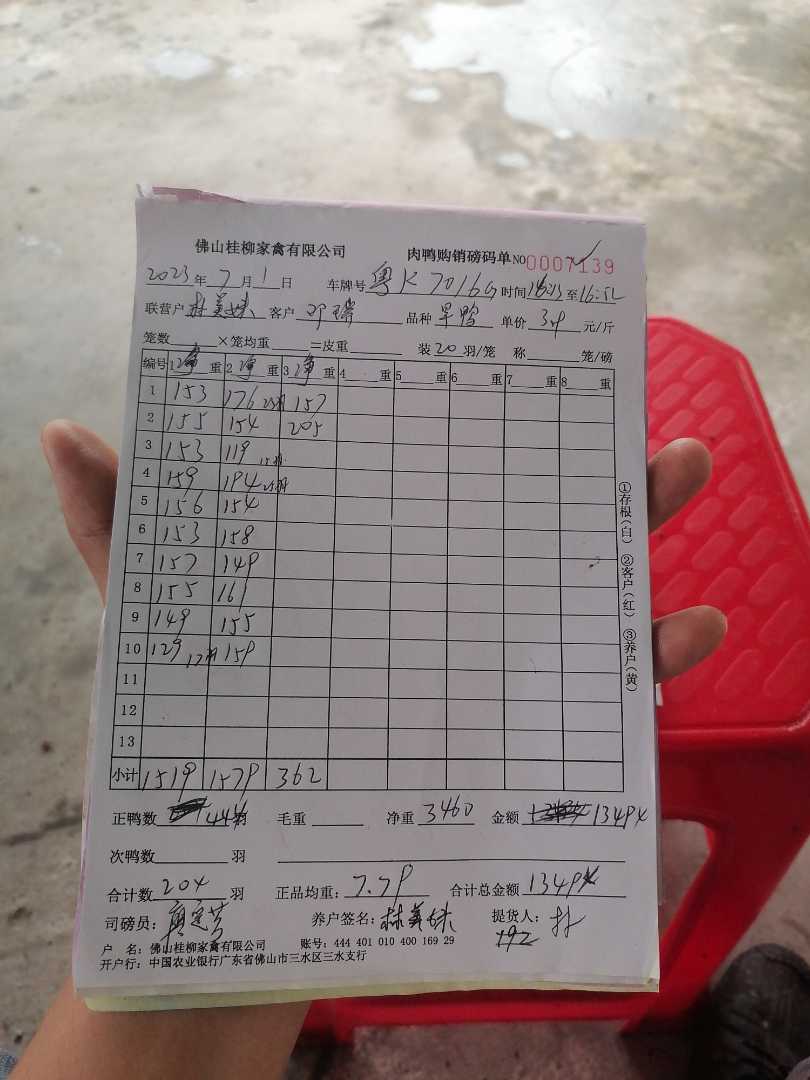 佛山桂柳家禽有限公司 肉鸭购销磅码单 NO 0007139
2023年7月1日 车牌号 粤K 7016G 时间 至16:
联营户 林美妹 客户 邓瑞 品种 旱鸭 单价 3.9 元/斤
笼数 ×笼均重 =皮重 装20羽/笼 称 笼/磅
编号 1净重 2净重 3净重 4 重 5 重 6 重 7 重 8 重
1 153 176 23羽 157
2 155 154 205
3 153 119 15羽
4 159 194 25羽
5 156 154
6 153 158
7 157 149
8 155 161
9 149 155
10 129 17羽 159
11
12
13
小计 1519 1579 362
①存根(白) ②客户(红) ③养户(黄)
正鸭数 444羽 毛重 净重 3460 金额 13494
次鸭数 羽
合计数 204 羽 正品均重: 7.79 合计总金额 13494
司磅员: 养户签名: 林美妹 提货人:
192
户 名: 佛山桂柳家禽有限公司 账号: 444 401 010 400 169 29
开户行: 中国农业银行广东省佛山市三水区三水支行